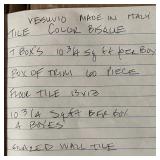 VESUVIO MADE IN ITALY
TILE COLOR BISQUE
7 BOX'S 10 3/4 Sq ft per Box
BOX OF TRIM 60 PIECE
FLOOR TILE 13x13
10 3/4 Sq ft PER BOX
4 BOXES
GLAZED WALL TILE